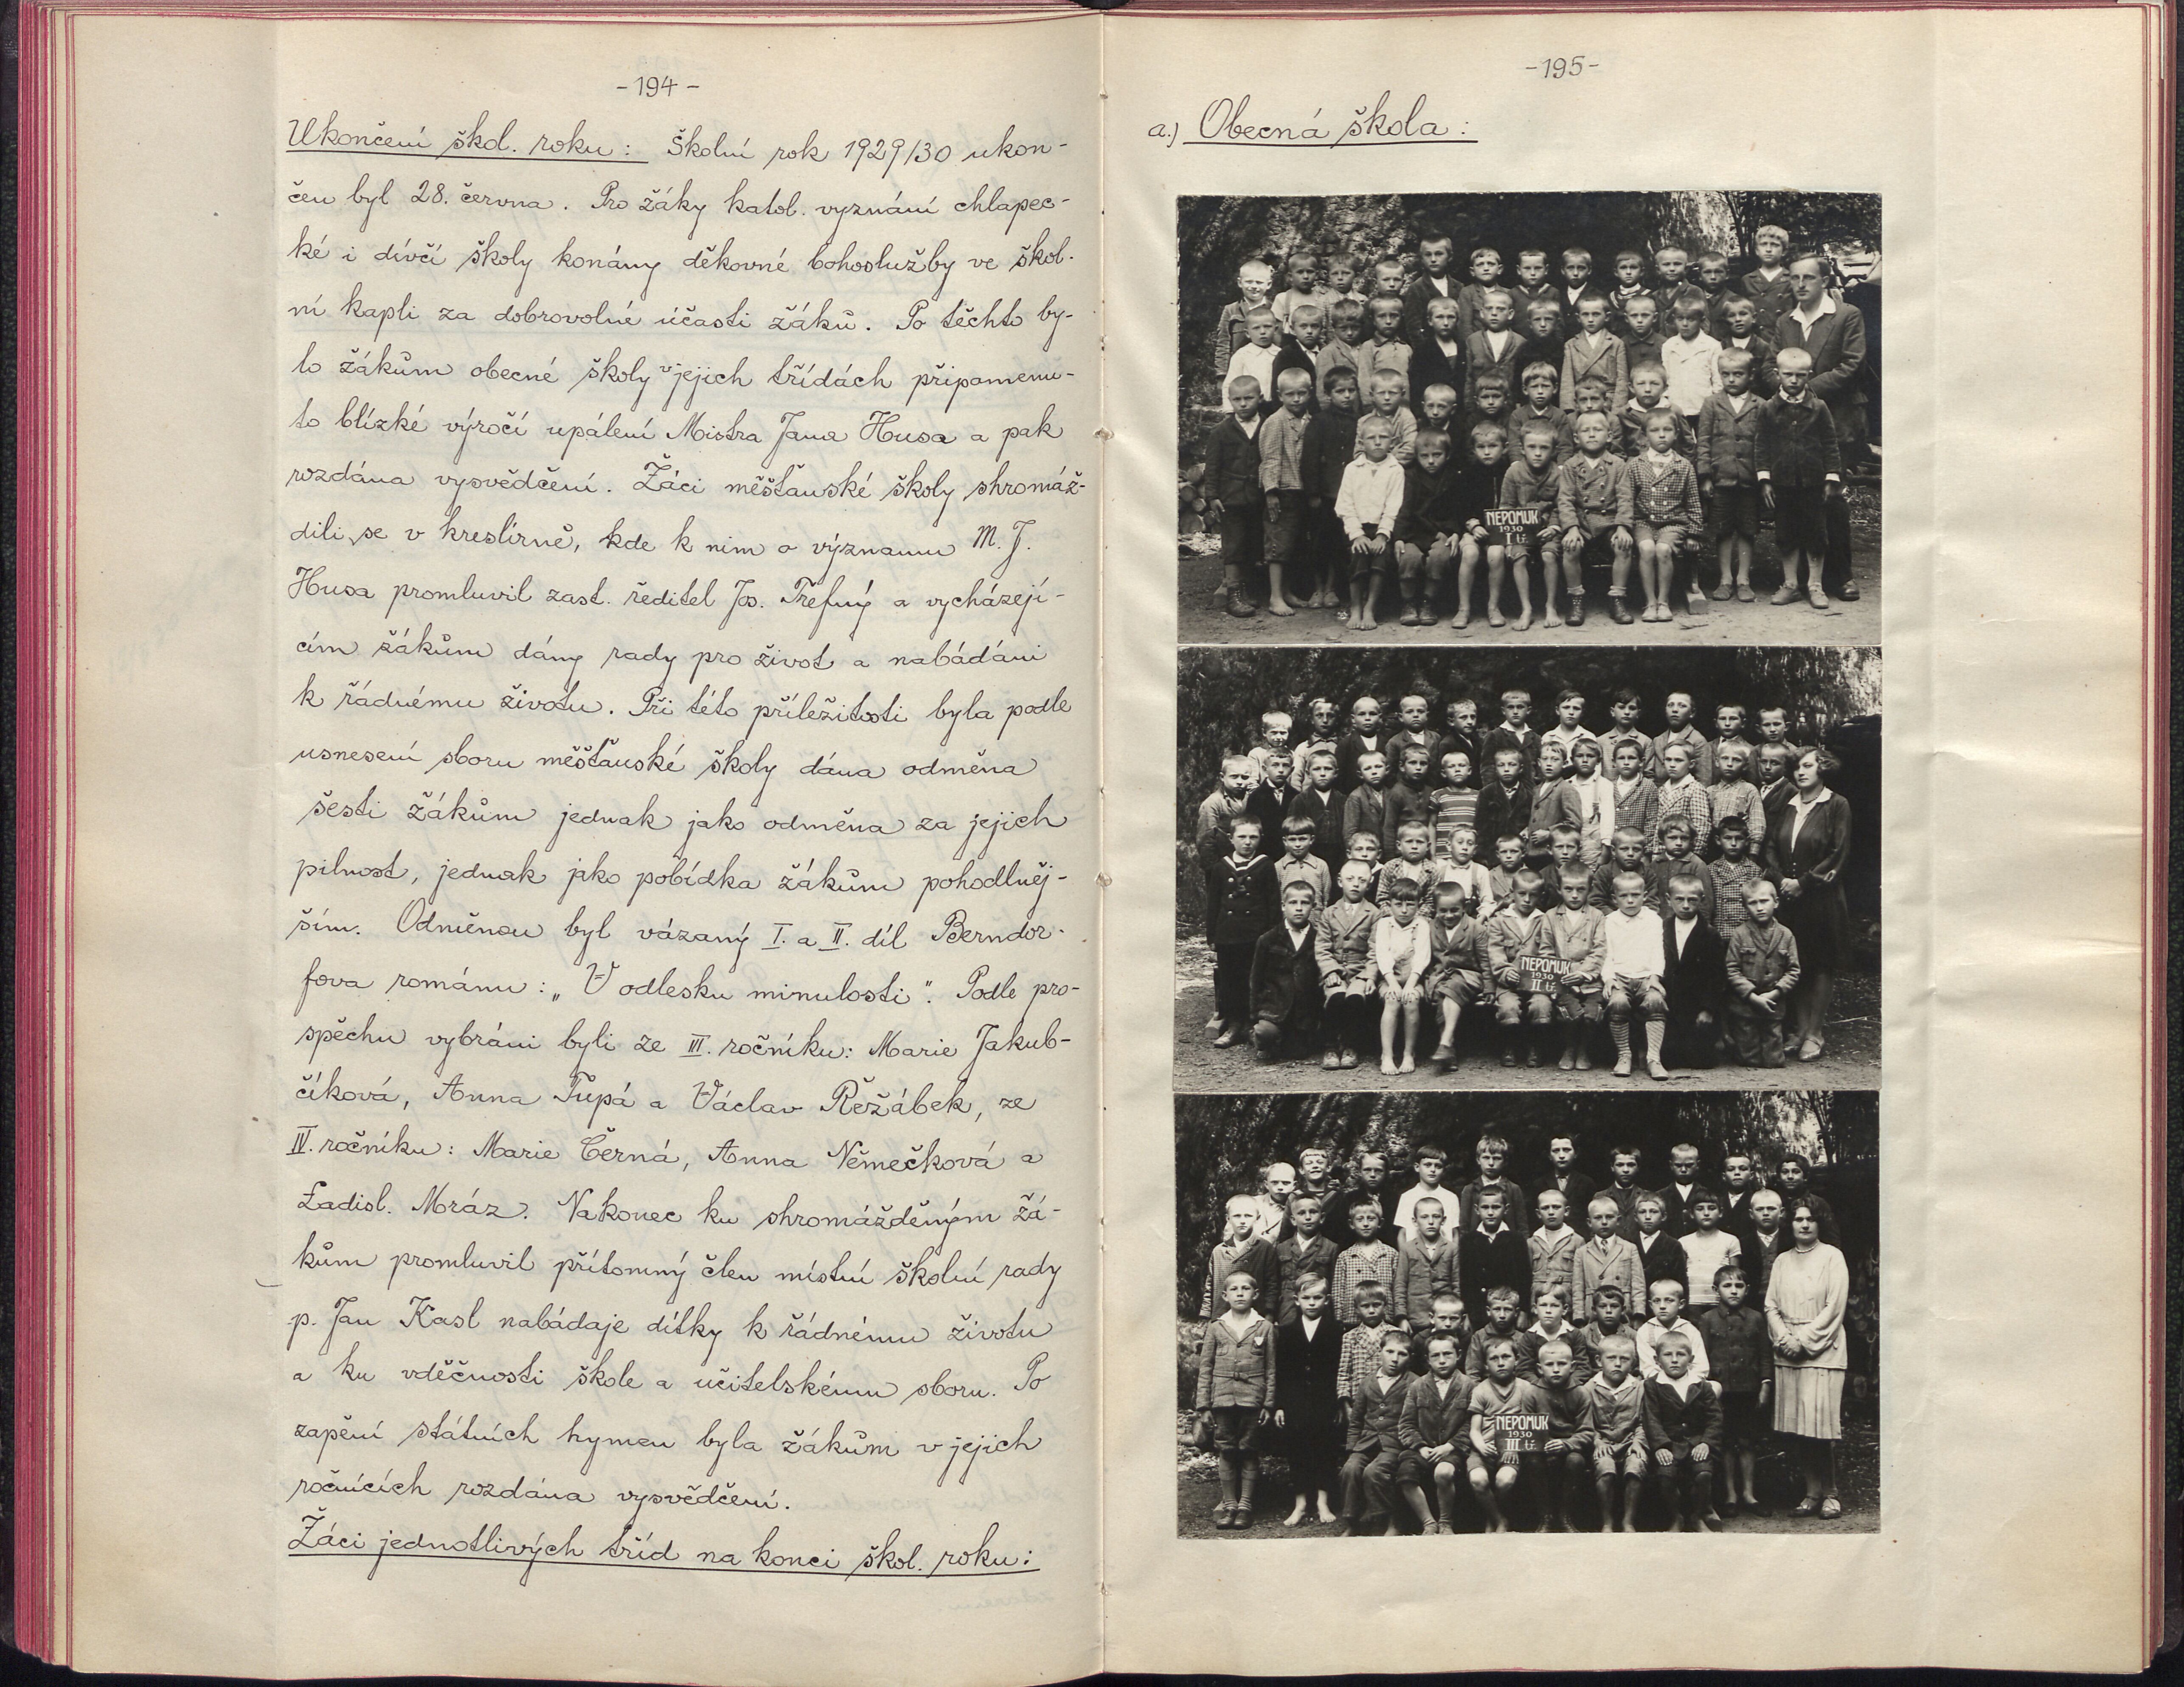 -194-
Ukončení škol. roku: Školní rok 1929/30 ukon-
čen byl 28. června. Pro žáky katol. vyznání chlapec-
ké i dívčí školy konány děkovné bohoslužby ve škol-
ní kapli za dobrovolné účasti žáků. Po těchto by-
lo žákům obecné školy v jejich třídách připomenu-
to blízké výročí upálení Mistra Jana Husa a pak
rozdána vysvědčení. Žáci měšťanské školy shromáž-
dili se v kreslírně, kde k nim o významu M. J.
Husa promluvil zast. ředitel Jos. Trefný a vycházejí-
cím žákům dány rady pro život a nabádáni
k řádnému životu. Při této příležitosti byla podle
usnesení sboru měšťanské školy dána odměna
šesti žákům jednak jako odměna za jejich
pilnost, jednak jako pobídka žákům pohodlněj-
ším. Odměnou byl vázaný I. a II. díl Berndor-
fova románu: „V odlesku minulosti". Podle pro-
spěchu vybráni byli ze III. ročníku: Marie Jakub-
číková, Anna Tupá a Václav Řežábek, ze
IV. ročníku: Marie Černá, Anna Němečková a
Ladisl. Mráz. Nakonec ku shromážděným žá-
kům promluvil přítomný člen místní školní rady
p. Jan Kasl nabádaje dítky k řádnému životu
a ku vděčnosti škole a učitelskému sboru. Po
zapění státních hymen byla žákům v jejich
ročnících rozdána vysvědčení.
Žáci jednotlivých tříd na konci škol. roku:
-195-
a.) Obecná škola:
NEPOMUK
1930
I tř.
NEPOMUK
1930
II tř.
NEPOMUK
1930
III tř.